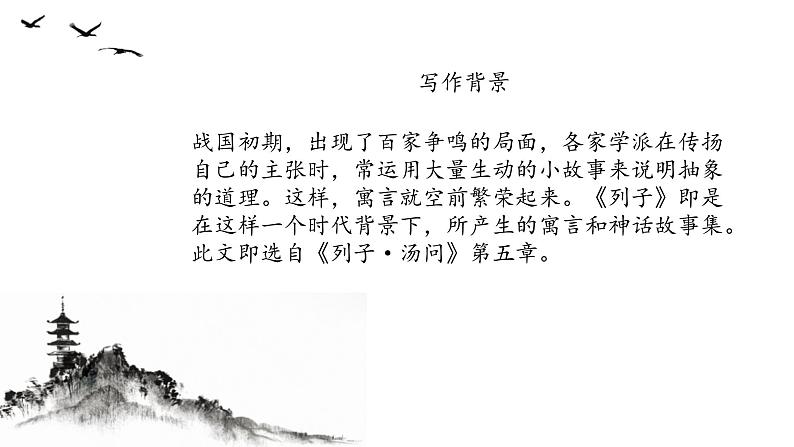 写作背景
战国初期，出现了百家争鸣的局面，各家学派在传扬
自己的主张时，常运用大量生动的小故事来说明抽象
的道理。这样，寓言就空前繁荣起来。《列子》即是
在这样一个时代背景下，所产生的寓言和神话故事集。
此文即选自《列子·汤问》第五章。